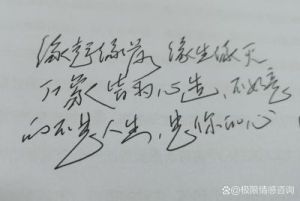 缘起缘落 缘生缘灭
万象皆为心造，不如意
的不是人生，是你的心
@极限情感咨询